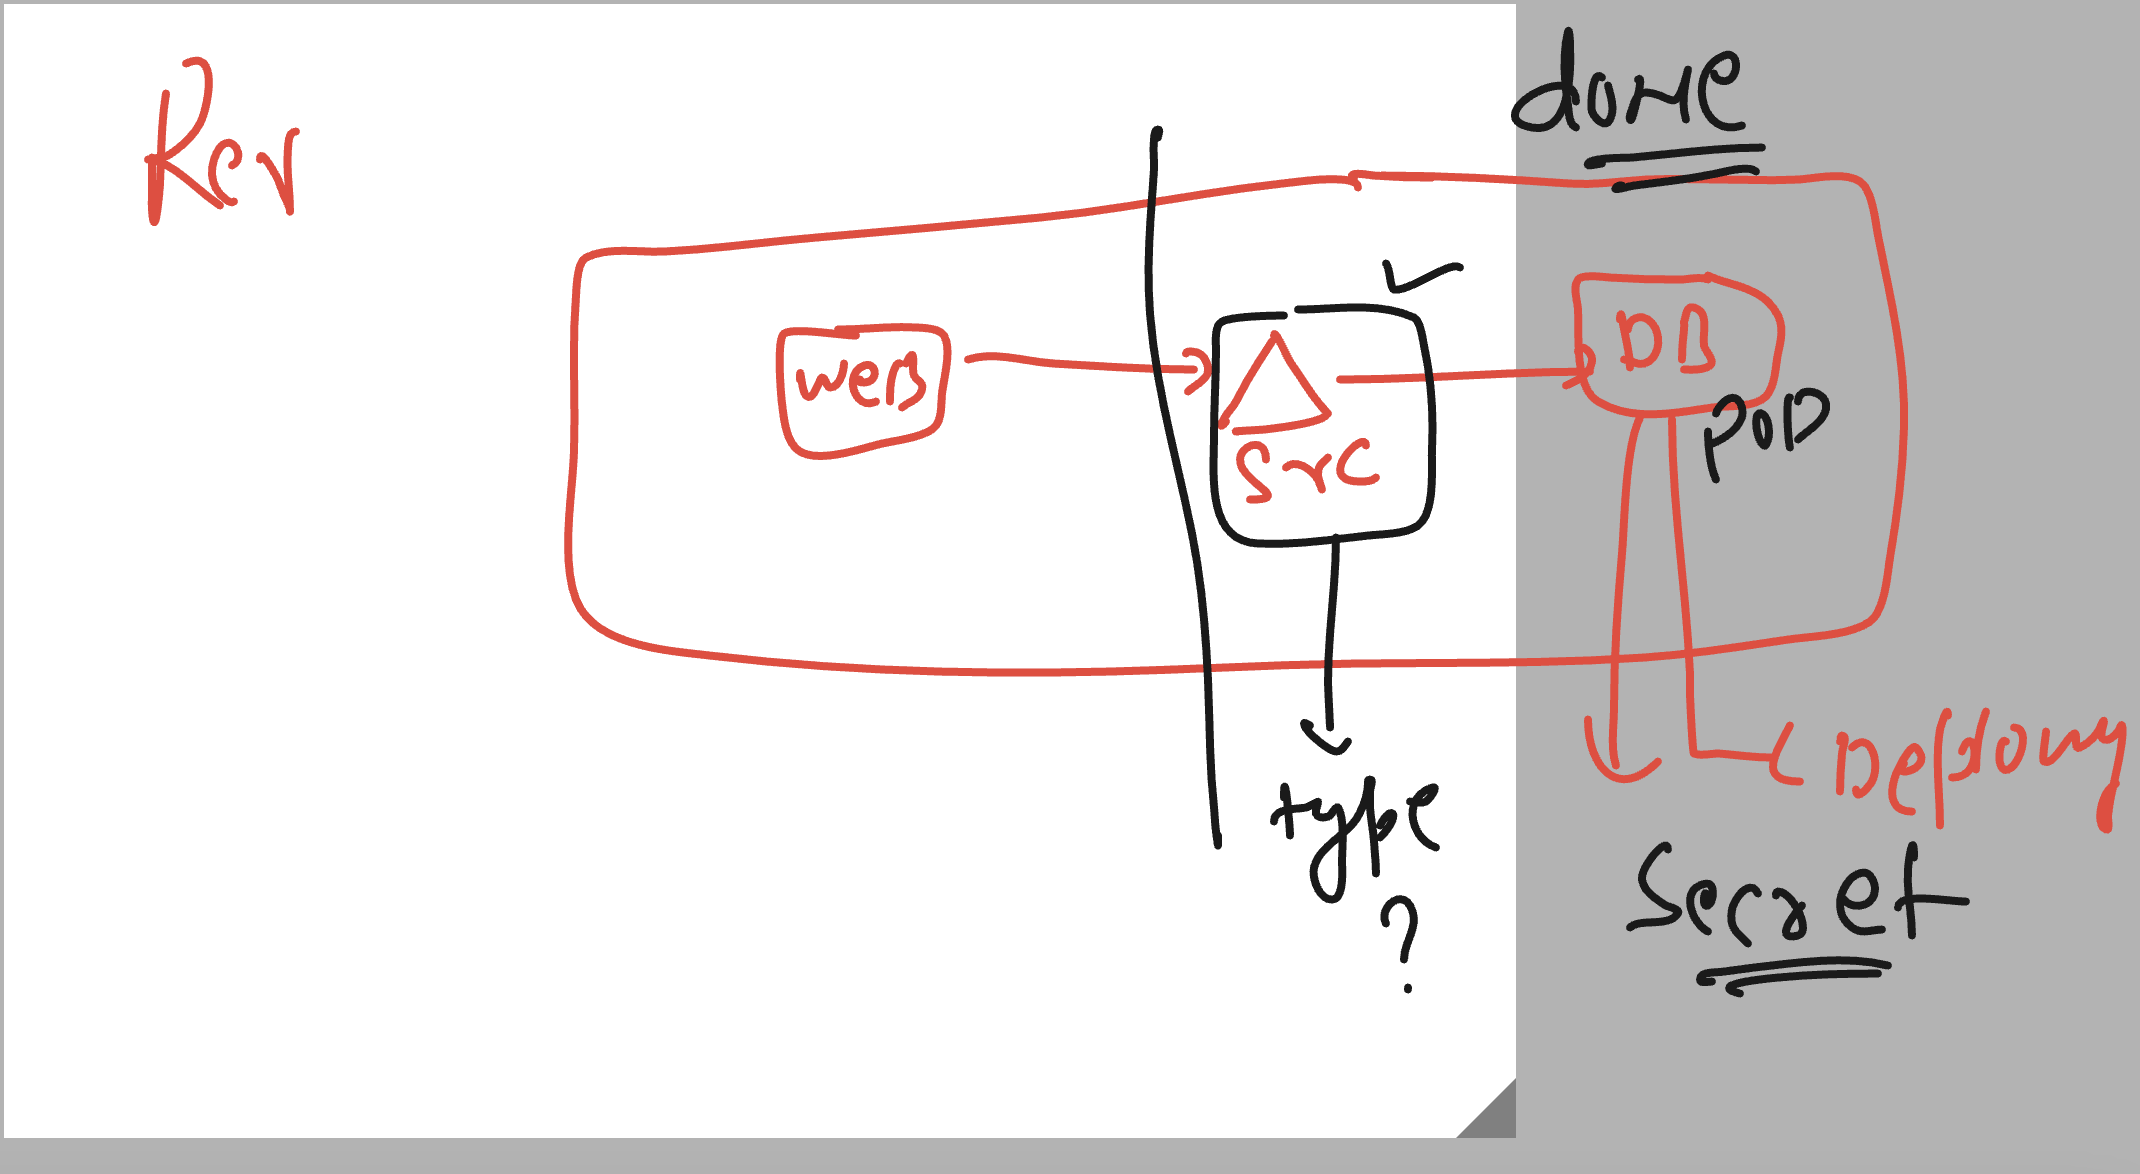 Rev
done
web
DB
POD
Src
type
?
Deploy
Secret